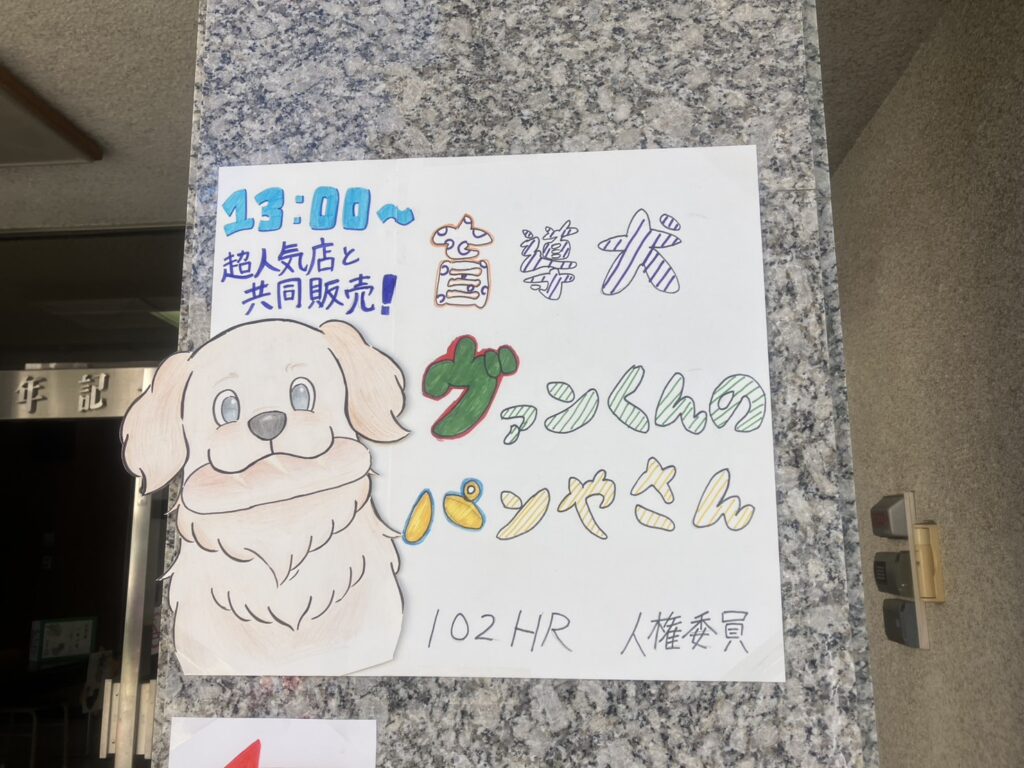 13:00～
超人気店と
共同販売!
盲導犬
ヴァンくんの
パンやさん
102HR 人権委員
年記